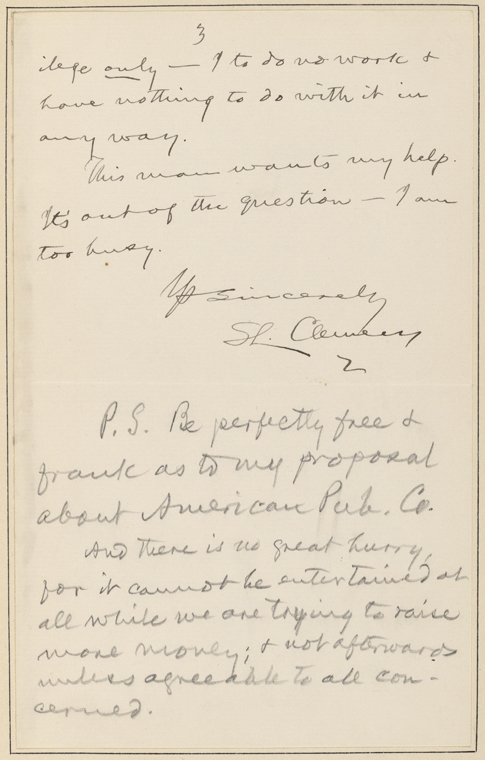 3
ilege only — I to do no work &
have nothing to do with it in
any way.
This man wants my help.
It's out of the question — I am
too busy.
Yrs sincerely
SL. Clemens
P.S. Be perfectly free &
frank as to my proposal
about American Pub. Co.
And there is no great hurry,
for it cannot be entertained at
all while we are trying to raise
more money; & not afterwards
unless agreeable to all con-
cerned.